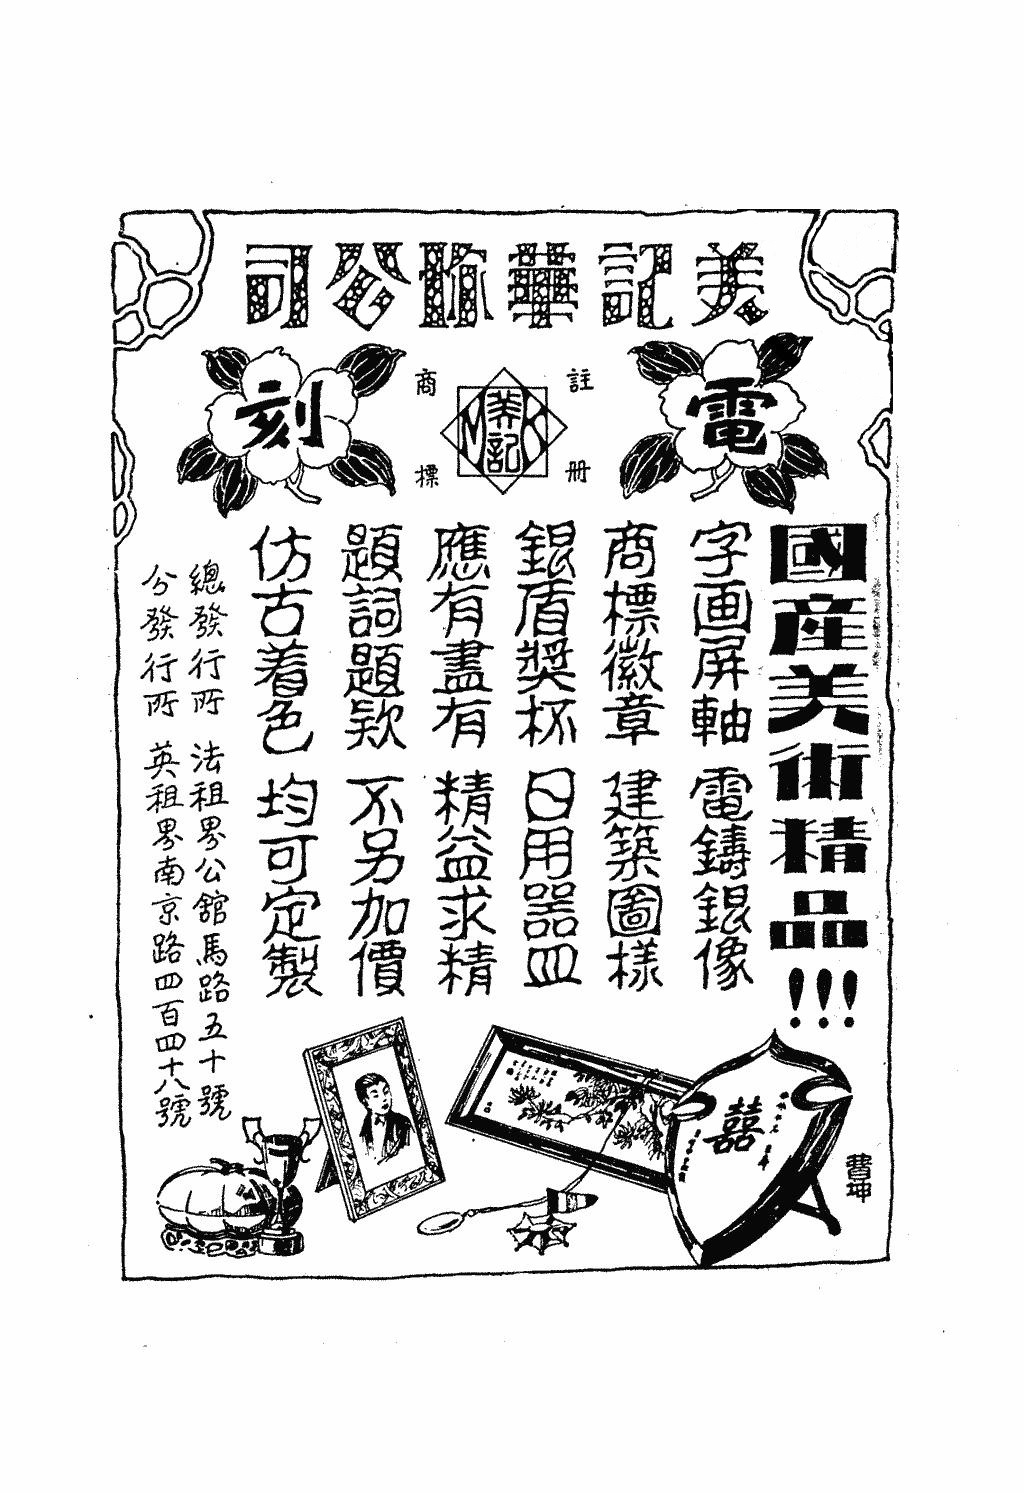 美記華珎公司
電刻
註冊
商標
M美記K
國產美術精品!!!
字画屏軸 電鑄銀像
商標徽章 建築圖樣
銀盾獎杯 日用器皿
應有盡有 精益求精
題詞題欵 不另加價
仿古着色 均可定製
總發行所 法租界公館馬路五十號
分發行所 英租界南京路四百四十八號
囍
費坤